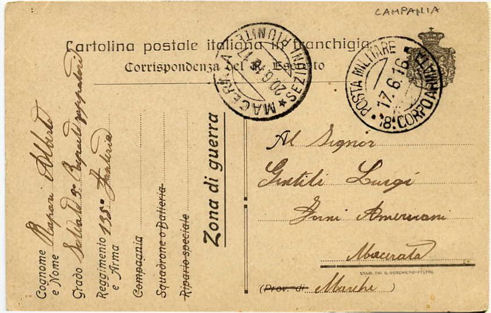 CAMPANIA
Cartolina postale italiana in franchigia
Corrispondenza del R. Esercito
MACERATA
20.6.16
SEZIONI RIUNITE
POSTA MILITARE
17.6.16
8° CORPO ARMATA
Zona di guerra
Cognome
e Nome
Alberto
Grado Soldato
Reggimento 135° Fanteria
e Arma
Compagnia
Squadrone o Batteria
Riparto speciale
Al Signor
Gentili Luigi
Forni Americani
Macerata
(Prov. di Marche)